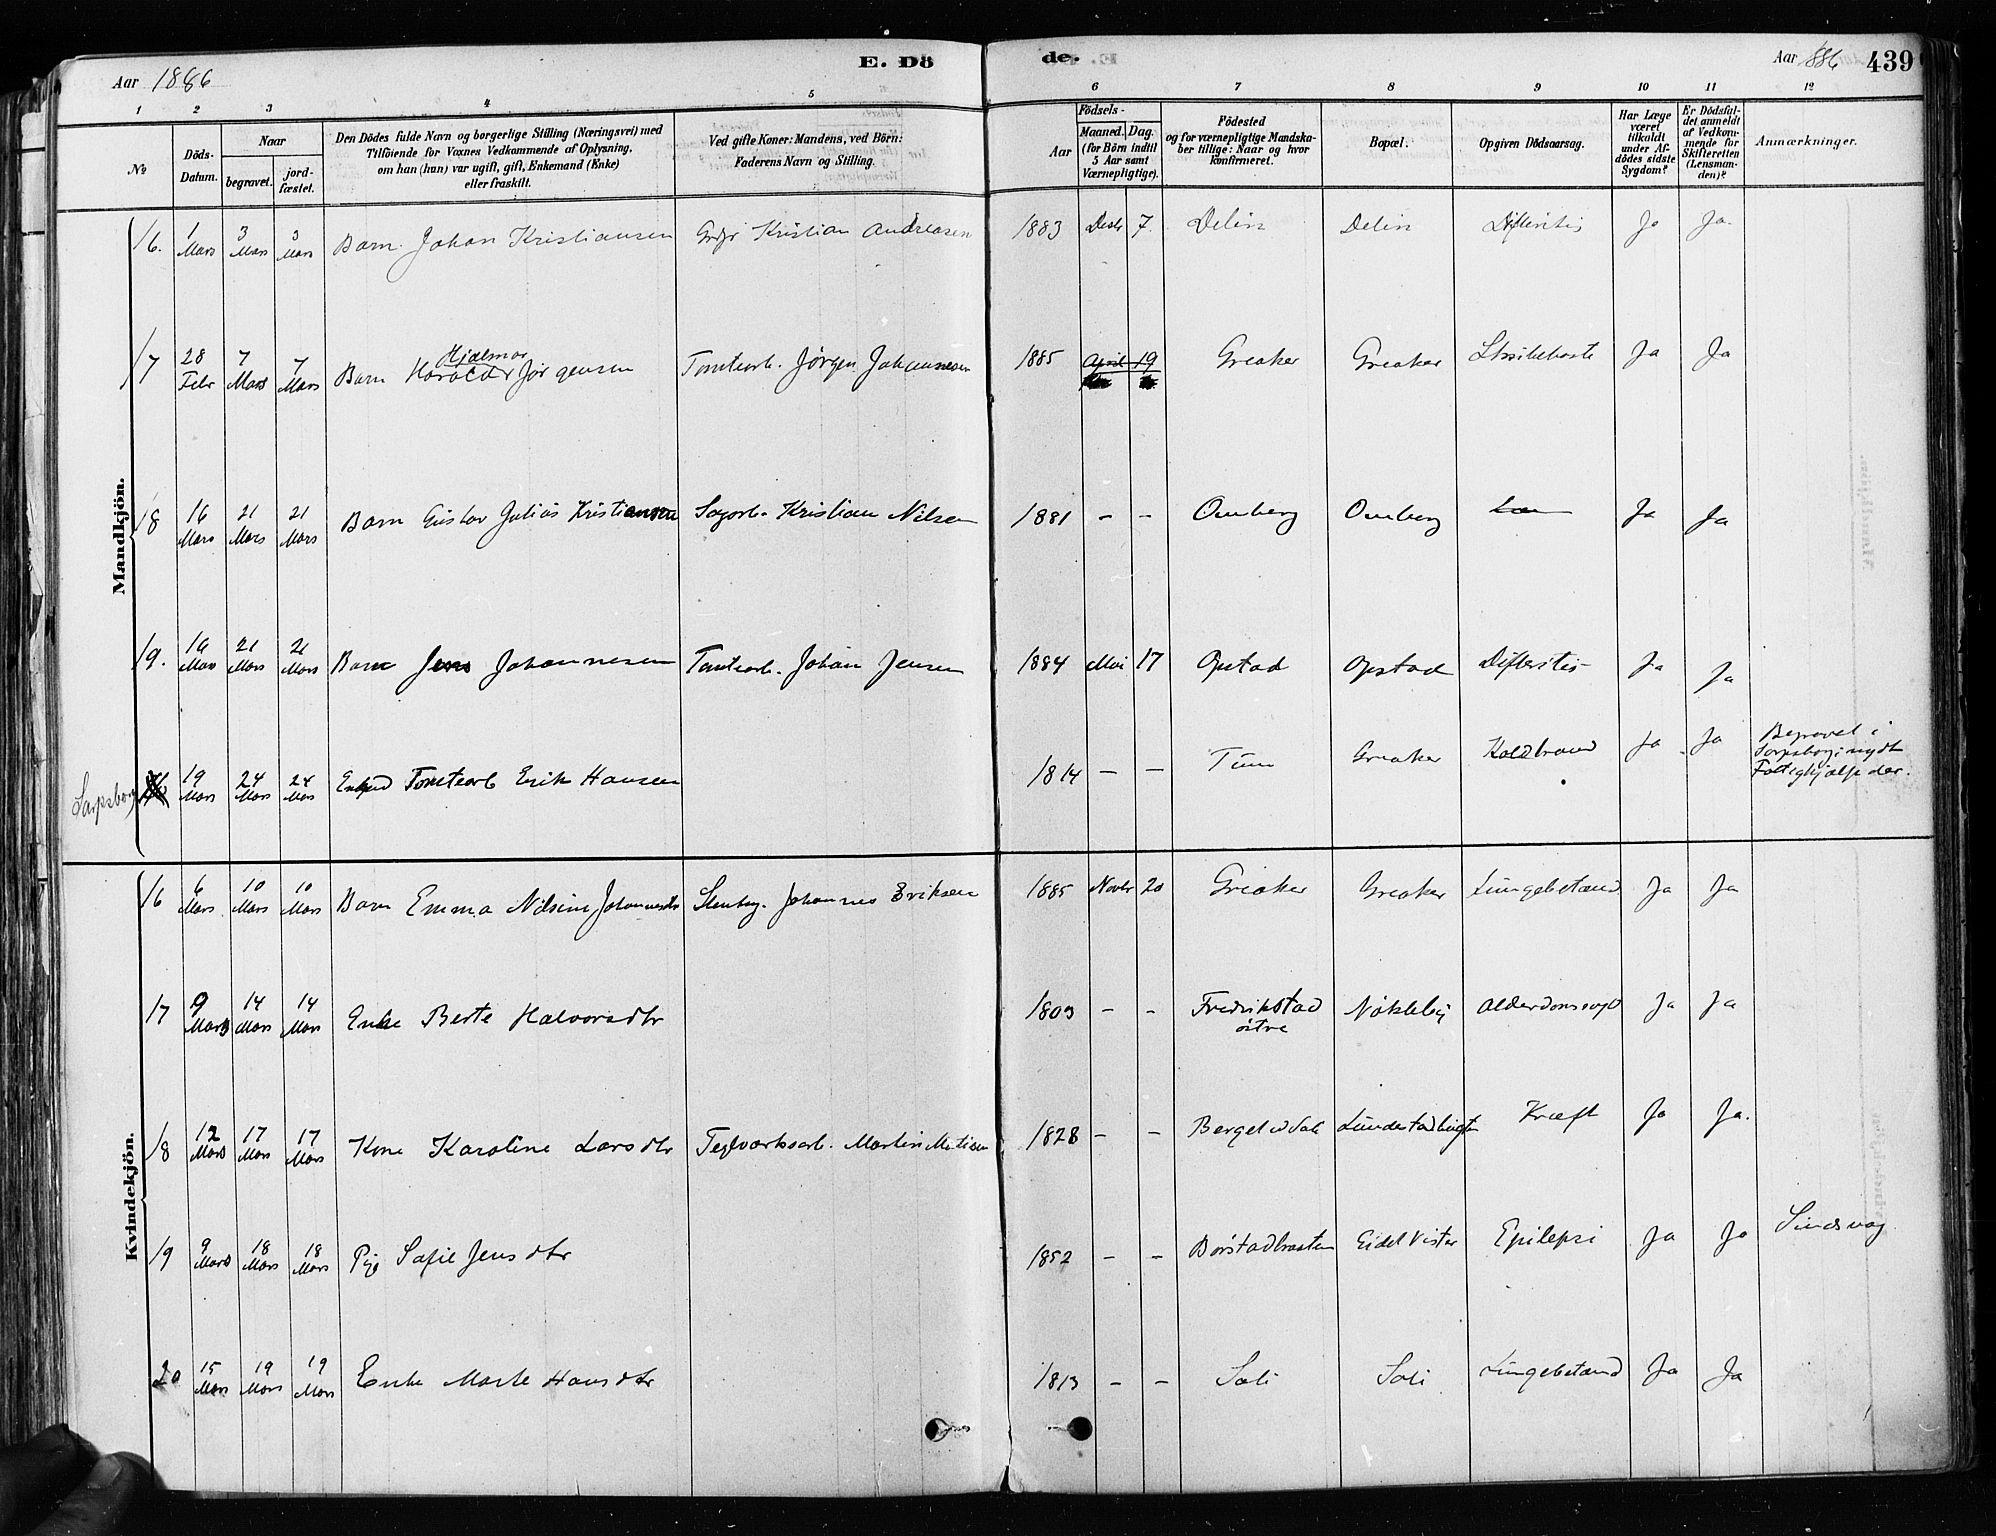 Aar 1886
E. Dö
de.
Aar 1886
439
1 2 3 4 5 6 7 8 9 10 11 12
No
Döds-Datum.
Naar
begravet.
jord-fæstet.
Den Dödes fulde Navn og borgerlige Stilling (Næringsvei) med
Tilföiende for Voxnes Vedkommende af Oplysning,
om han (hun) var ugift, gift, Enkemand (Enke)
eller fraskilt.
Ved gifte Koner: Mandens, ved Börn:
Faderens Navn og Stilling.
Födsels-
Aar
Maaned. Dag.
(for Börn indtil
5 Aar samt
Værnepligtige).
Födested
og for værnepligtige Mandska-
ber tillige: Naar og hvor
konfirmeret.
Bopæl.
Opgiven Dödsaarsag.
Har Læge
været
tilkaldt
under Af-
dödes sidste
Sygdom?
Er Dödsfal-
det anmeldt
af Vedkom-
mende for
Skifteretten
(Lensman-
den)?
Anmærkninger.
Mandkjön.
16. 1 Mars 3 Mars 3 Mars Barn Johan Kristiansen Kristian Andreasen 1883 Desbr 7. Delin Delin Difteritis Ja Ja.
17 28 Febr 7 Mars 7 Mars Barn Harald Hjalmar Jørgensen Tomtearb. Jørgen Johannesen 1885 April 19 Greaker Greaker Ja Ja
18 16 Mars 21 Mars 21 Mars Barn Gustav Julius Kristiansen Sagarb. Kristian Nilsen 1881 - - Omberg Omberg Ja Ja
19. 16 Mars 21 Mars 21 Mars Barn Jens Johannesen Tomtearb. Johan Jensen 1884 Mai 17 Opstad Opstad Difteritis Ja Ja
Sarpsborg 19 Mars 24 Mars 24 Mars Tomtearb Erik Hansen 1814 - - Tune Greaker Koldbrand Ja Ja Begravet i
Sarpsborg; nydt
Fattighjælp der.
Kvindekjön.
16 6 Mars 10 Mars 10 Mars Barn Emma Nilsine Johannesdtr Stenhug. Johannes Eriksen 1885 Novbr 20 Greaker Greaker Lungebetænd Ja Ja
17 9 Mars 14 Mars 14 Mars Enke Berte Halvorsdtr 1803 - - Fredrikstad
østre Nøkleby Alderdomssvagh Ja Ja
18 12 Mars 17 Mars 17 Mars Kone Karoline Larsdtr Teglværksarb. Martin Matisen 1828 - - Kræft Ja Ja.
19 9 Mars 18 Mars 18 Mars Pige Sofie Jensdtr 1852 - - Borstadbraaten Eidet Vister Epilepsi Ja Ja Sindsvag
20 15 Mars 19 Mars 19 Mars Enke Marte Hansdtr 1813 - - Soli Soli Lungebetænd Ja Ja